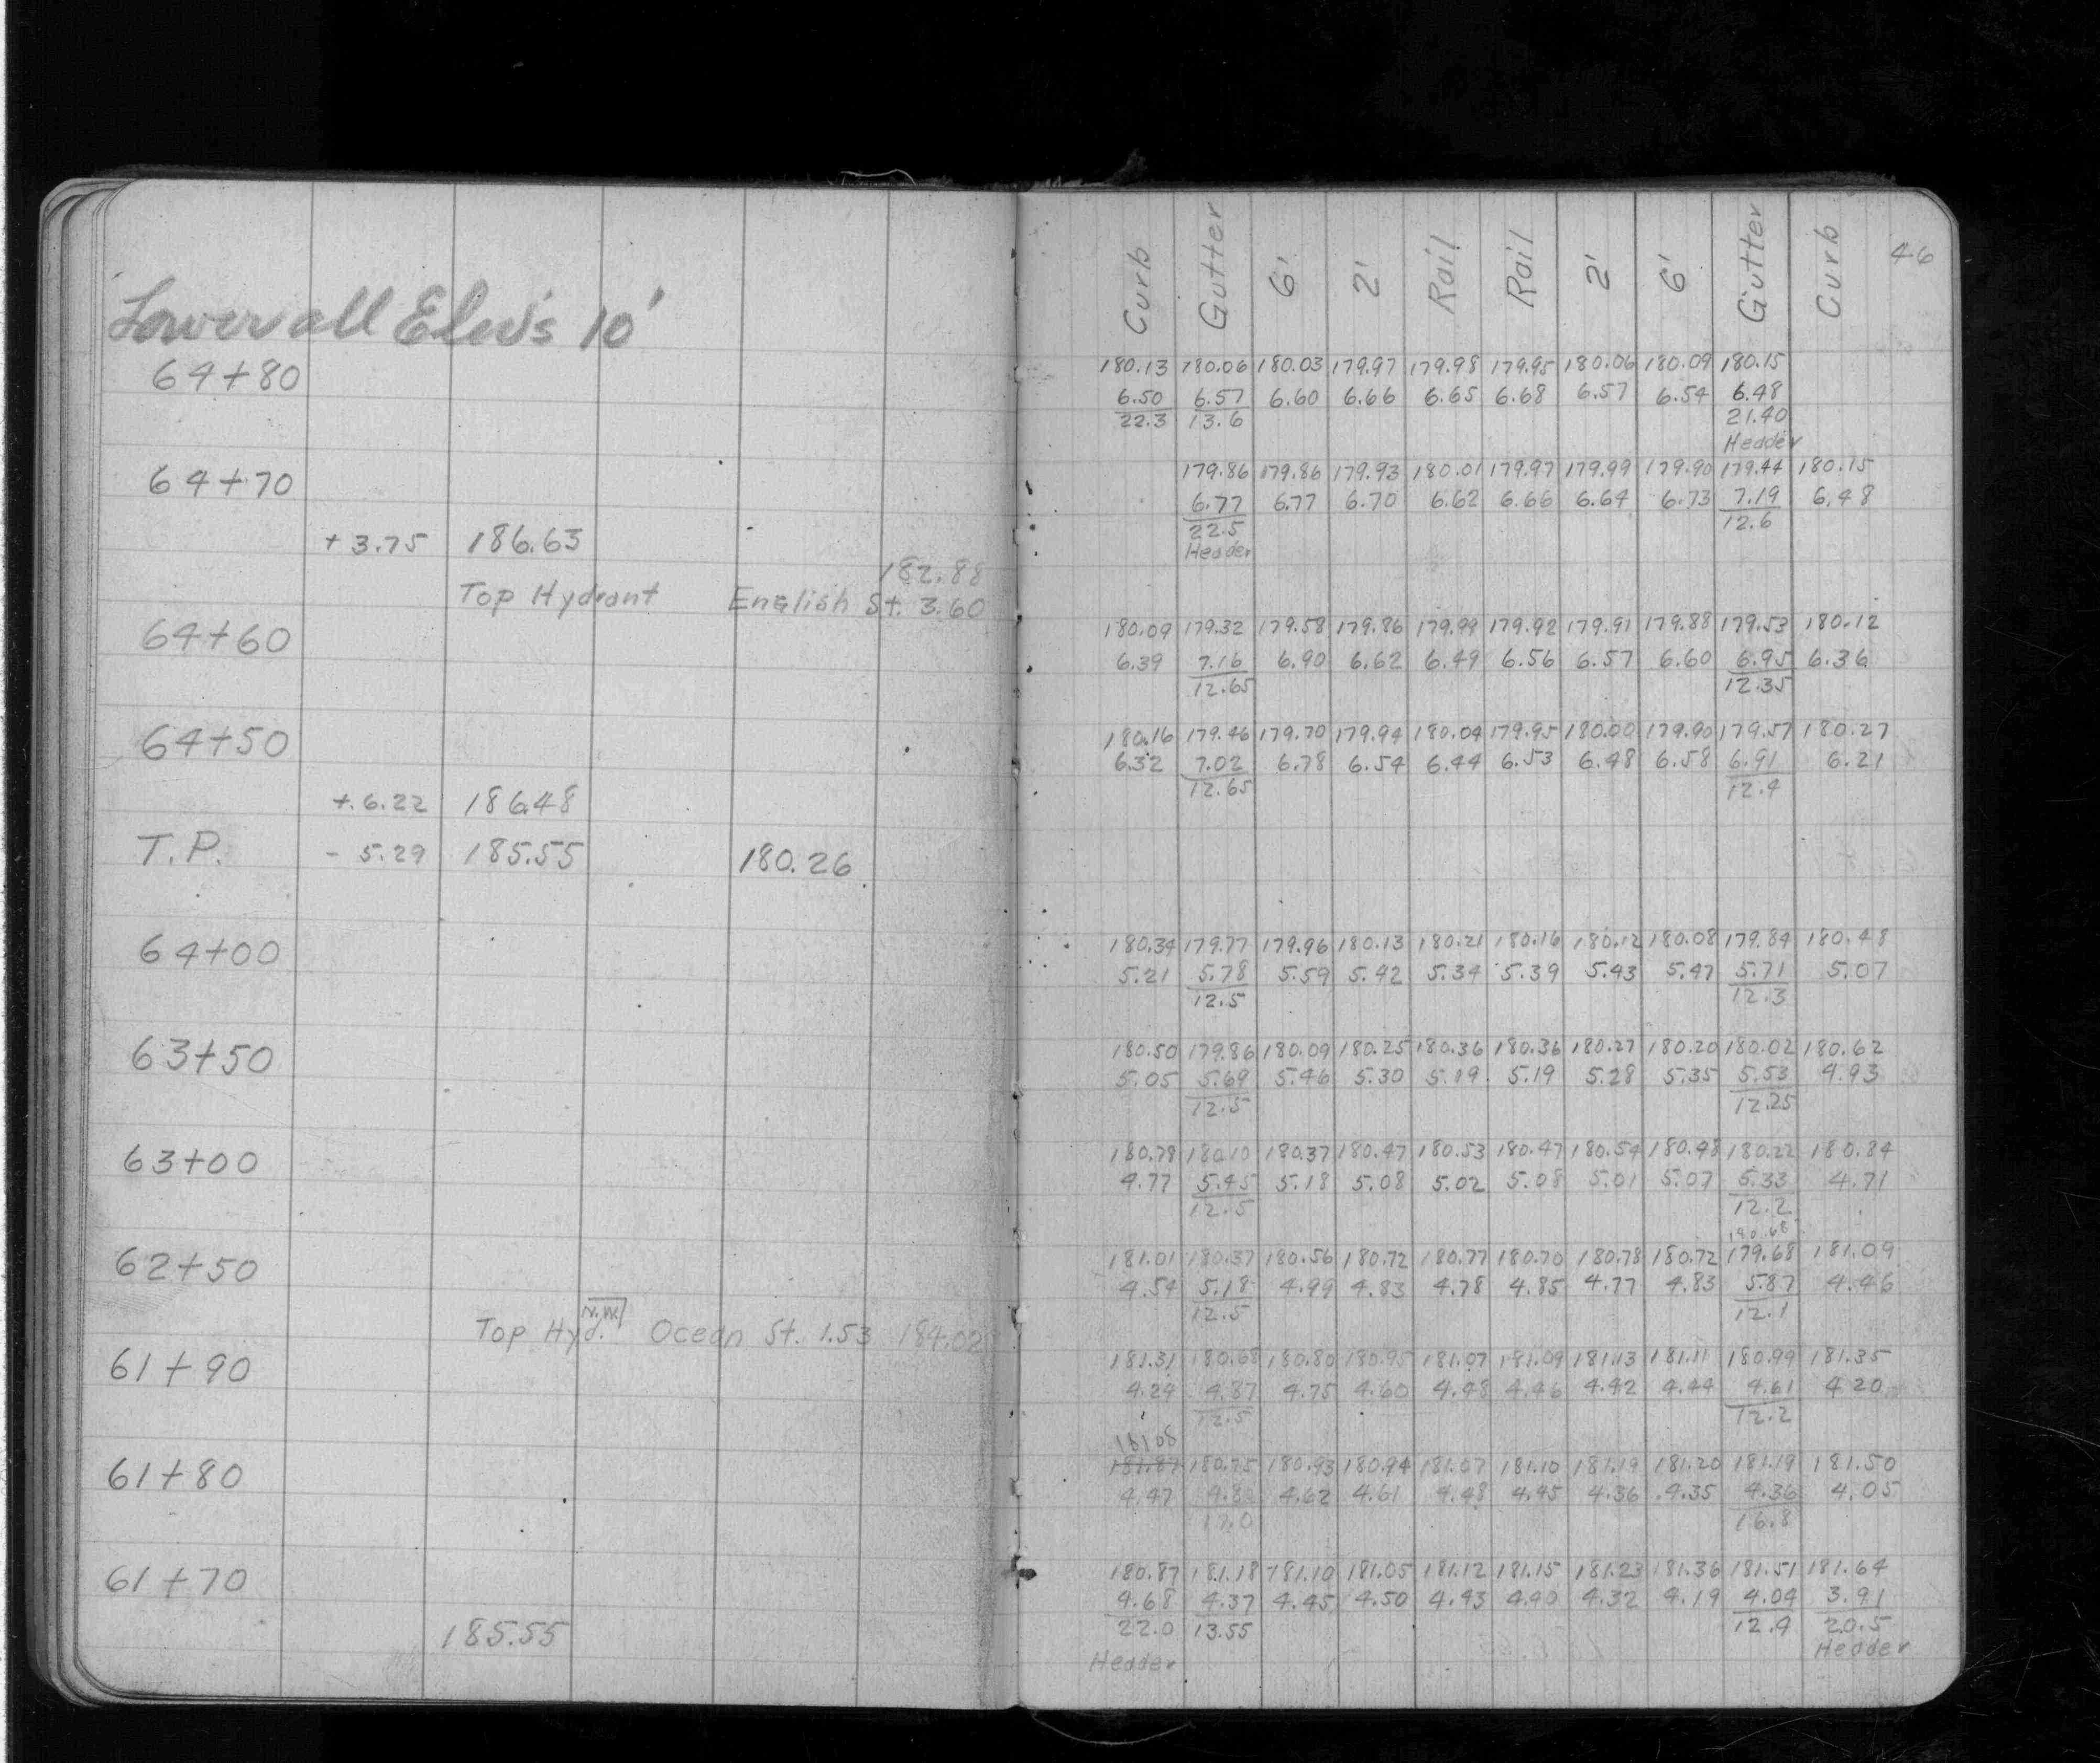 Lower all Elev's 10'
64+80
64+70
+3.75 186.63
182.88
Top Hydrant English St. 3.60
64+60
64+50
+.6.22 186.48
T.P. - 5.29 185.55 180.26
64+00
63+50
63+00
62+50
N.W.
Top Hyd. Ocean St. 1.53 184.02
61+90
61+80
61+70
185.55
46
Curb Gutter 6' 2' Rail Rail 2' 6' Gutter Curb
180.13 180.06 180.03 179.97 179.98 179.95 180.06 180.09 180.15
6.50 6.57 6.60 6.66 6.65 6.68 6.57 6.54 6.48
22.3 13.6 21.40
Hedder
179.86 179.86 179.93 180.01 179.97 179.99 179.90 179.44 180.15
6.77 6.77 6.70 6.62 6.66 6.64 6.73 7.19 6.48
22.5 12.6
Hedder
180.09 179.32 179.58 179.86 179.99 179.92 179.91 179.88 179.53 180.12
6.39 7.16 6.90 6.62 6.49 6.56 6.57 6.60 6.95 6.36
12.65 12.35
180.16 179.46 179.70 179.94 180.04 179.95 180.00 179.90 179.57 180.27
6.32 7.02 6.78 6.54 6.44 6.53 6.48 6.58 6.91 6.21
12.65 12.4
180.34 179.77 179.96 180.13 180.21 180.16 180.12 180.08 179.84 180.48
5.21 5.78 5.59 5.42 5.34 5.39 5.43 5.47 5.71 5.07
12.5 12.3
180.50 179.86 180.09 180.25 180.36 180.36 180.27 180.20 180.02 180.62
5.05 5.69 5.46 5.30 5.19 5.19 5.28 5.35 5.53 4.93
12.5 12.25
180.78 180.10 180.37 180.47 180.53 180.47 180.54 180.48 180.22 180.84
4.77 5.45 5.18 5.08 5.02 5.08 5.01 5.07 5.33 4.71
12.5 12.2
180.68
181.01 180.37 180.56 180.72 180.77 180.70 180.78 180.72 179.68 181.09
4.54 5.18 4.99 4.83 4.78 4.85 4.77 4.83 5.87 4.46
12.5 12.1
181.31 180.68 180.80 180.95 181.07 181.09 181.13 181.11 180.94 181.35
4.24 4.87 4.75 4.60 4.48 4.46 4.42 4.44 4.61 4.20
12.5 12.2
181.08
181.87 180.75 180.93 180.94 181.07 181.10 181.19 181.20 181.19 181.50
4.47 4.80 4.62 4.61 4.48 4.45 4.36 4.35 4.36 4.05
17.0 16.8
180.87 181.18 181.10 181.05 181.12 181.15 181.23 181.36 181.51 181.64
4.68 4.37 4.45 4.50 4.43 4.40 4.32 4.19 4.04 3.91
22.0 13.55 12.9 20.5
Hedder Hedder